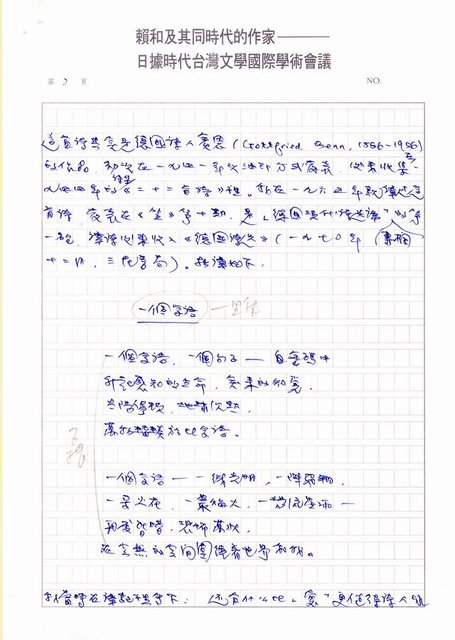 賴和及其同時代的作家———
日據時代台灣文學國際學術會議
第 3 頁 NO.
德國詩人賓恩(Gottfried Benn, 1886-1956)
的作品，初次在一九四一年以油印方式發表，後來收集在
一九四四年的《二十二首詩》裡。我在一九六 年 譯過這
首詩，發表在《笠》第十期，是「德國現代詩選譯」的第
一篇，後來收入《德國詩選》(一九七〇年
十二月，三民書局)。拙譯如下。
一個字語
一個字語，一個句子——自密碼中
升起感知的生命，突來的知覺，
太陽停頓，地球沈默，
萬物 於此字語。
一個字語——一線光明，一陣飛翔，
一朵火花，一叢焰火，一 流星雨——
再度昏暗，恐怖萬狀，
在空無的空間圍繞著世界和我。
我當時在譯記裡寫下：還有什麼比「愛」更值得詩人頌